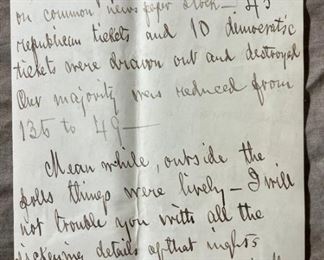 on common news paper stock — 45
republican tickets and 10 democratic
tickets were drawn out and destroyed
Our majority was reduced from
135 to 49 —
Mean while, outside the
polls things were lively — I will
not trouble you with all the
sickening details of that nights